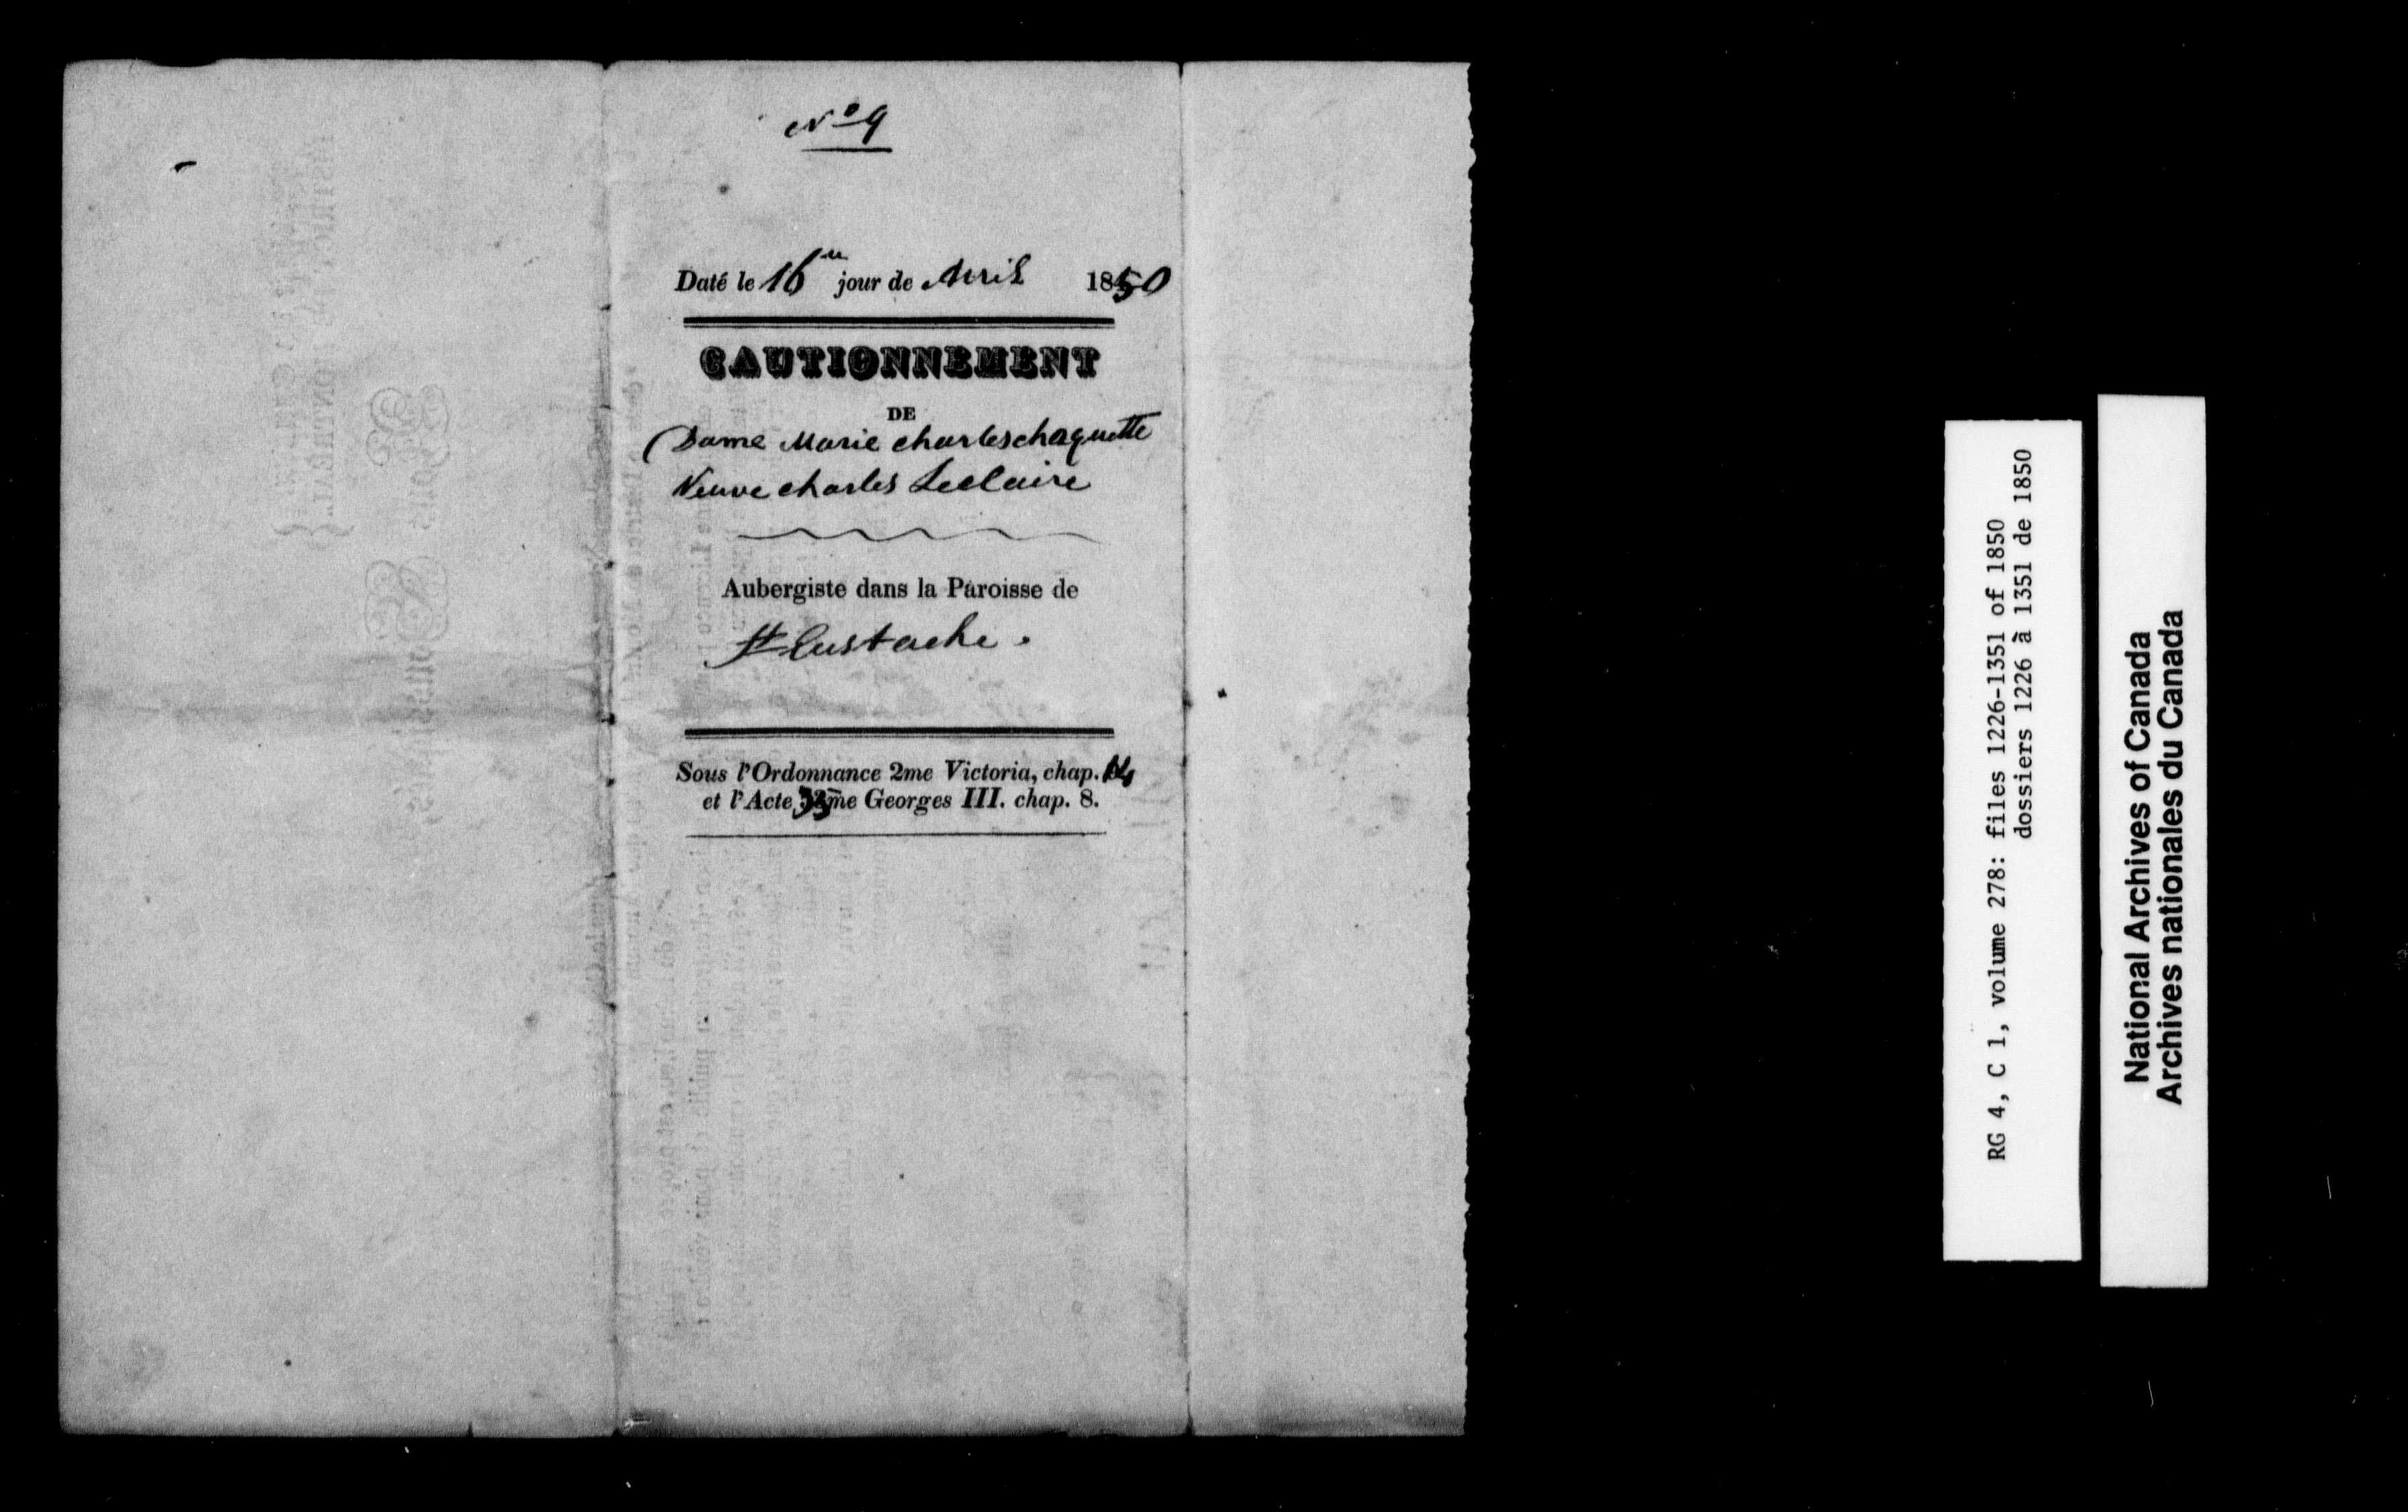 No 9
Daté le 16me jour de Avril 1850
CAUTIONNEMENT
DE
Dame Marie Charles choquette
Veuve charles Leclaire
Aubergiste dans la Paroisse de
St Eustache.
Sous l'Ordonnance 2me Victoria, chap. 14
et l'Acte 35me Georges III. chap. 8.
RG 4, C 1, volume 278: files 1226-1351 of 1850
dossiers 1226 à 1351 de 1850
National Archives of Canada
Archives nationales du Canada